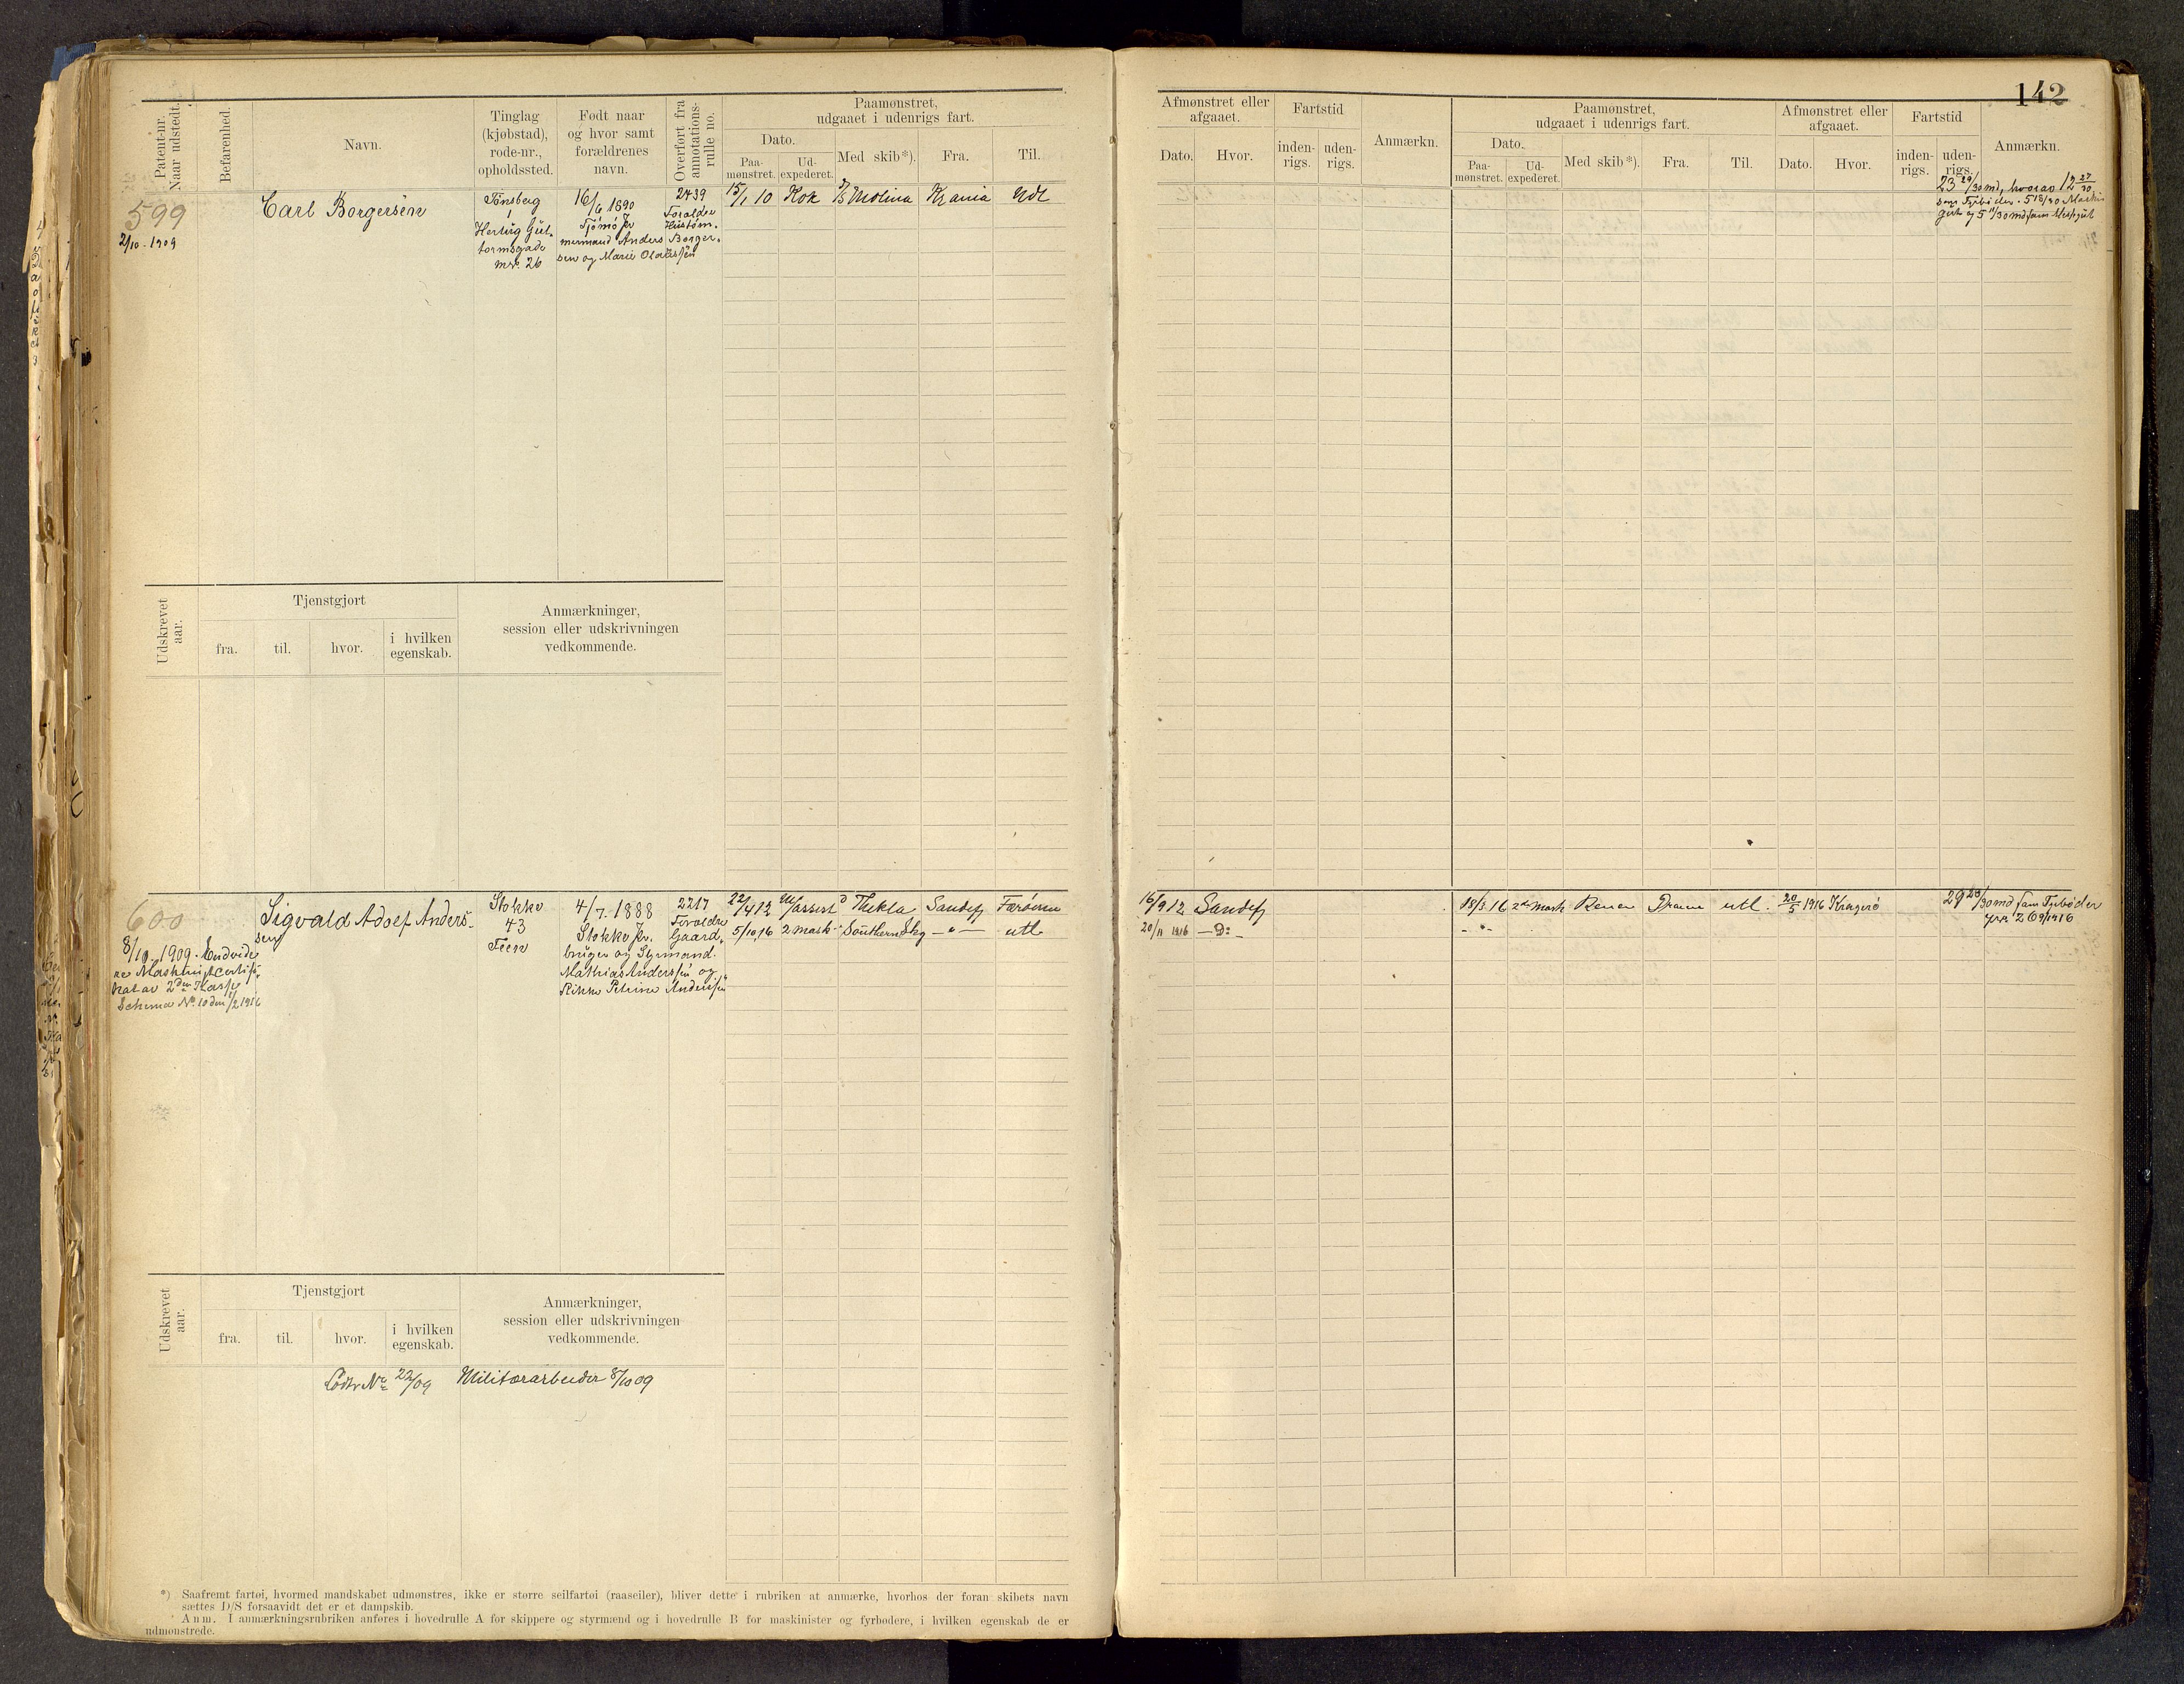 142
Patent-nr. Naar udstedt.
Befarenhed.
Navn.
Tinglag (kjøbstad), rode-nr., opholdssted.
Født naar og hvor samt forældrenes navn.
Overført fra annotations-rulle no.
Paamønstret, udgaaet i udenrigs fart.
Dato.
Paa-mønstret.
Ud-expederet.
Med skib*).
Fra.
Til.
Afmønstret eller afgaaet.
Dato.
Hvor.
Fartstid
inden-rigs.
uden-rigs.
Anmærkn.
Paamønstret, udgaaet i udenrigs fart.
Dato.
Paa-mønstret.
Ud-expederet.
Med skib*).
Fra.
Til.
Afmønstret eller afgaaet.
Dato.
Hvor.
Fartstid
inden-rigs.
uden-rigs.
Anmærkn.
599
2/10 - 1909
Carl Borgersen
Tönsberg
1
Hertug Gut-
tormsgade
mr. 26
16/6 1890
Tjömö
2439
Forældre
mermand Anders Borger-
sen og Marie
15/1 10 Kok D/S Molina Krania Udl
23 29/30 md, hvoraf 12 27/30
som Fyrböder. 5 18/30 Maskin
gut og 5 11/30 md som Messgut
Udskrevet aar.
Tjenstgjort
fra.
til.
hvor.
i hvilken egenskab.
Anmærkninger, session eller udskrivningen vedkommende.
600
8/10. 1909.
Sigvald Adolf Anders-
sen
Stokke
43
Feen
4/7. 1888
Stokke
2217
Forældre
Gaard-
bruger og Styrmand
Mathias Anderssen og
Rikke Petrine Anderssen
Maskinistcertifi-
kat av 2den Klasse
Schema No. 10 den 1/2 1916
22/4 12 M/assist D Thekla Sandefj Færöerne
5/10 16 2 mask Southern Sky - " - utl
16/9 12 Sandefj
20/11 1916 - D: -
18/3. 16 2den Mask Renen Dramn utl. 20/5 1916 Kragerö
- " -
29 28/30 md som Fyrböder
Udskrevet aar.
Tjenstgjort
fra.
til.
hvor.
i hvilken egenskab.
Anmærkninger, session eller udskrivningen vedkommende.
Lodtr No 22/09 Militærarbeider 8/10 09
*) Saafremt fartøi, hvormed mandskabet udmønstres, ikke er større seilfartøi (raaseiler), bliver dette i rubriken at anmærke, hvorhos der foran skibets navn
sættes D/S forsaavidt det er et dampskib.
Anm. I anmærkningsrubriken anføres i hovedrulle A for skippere og styrmænd og i hovedrulle B for maskinister og fyrbødere, i hvilken egenskab de er
udmønstrede.